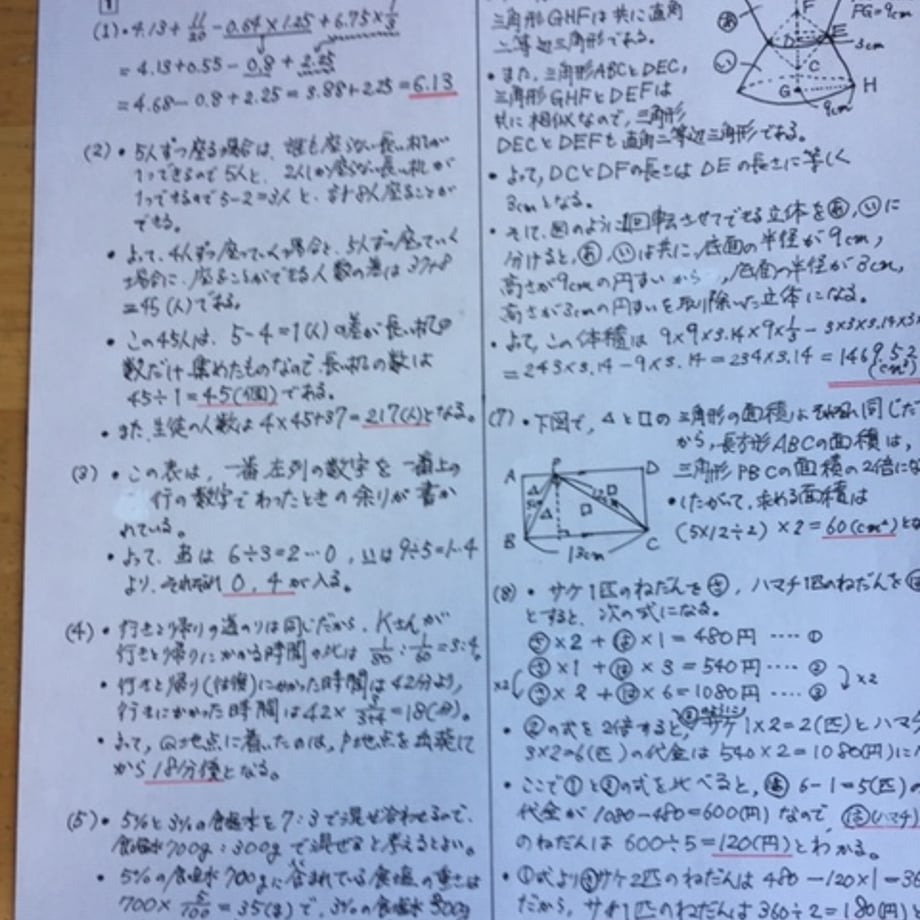 1
(1)・4.13+11/20-0.64×1.25+6.75×1/3
=4.13+0.55-0.8+2.25
=4.68-0.8+2.25=3.88+2.25=6.13
(2)・5人ずつ座る場合は、誰も座らない長い机が
1つできるので5人と、2人しか座らない長い机が
1つできるので5-2=3人と、計8人座ることが
できる。
・よって、4人ずつ座っていく場合と、5人ずつ座っていく
場合に、座ることができる人数の差は37+8
=45(人)である。
・この45人は、5-4=1(人)の差が長い机の
数だけ集めたものなので、長い机の数は
45÷1=45(個)である。
・また、生徒の人数は4×45+37=217(人)となる。
(3)・この表は、一番左列の数字を一番上の
行の数字でわったときの余りが書か
れている。
・よって、あは6÷3=2…0、いは9÷5=1…4
より、それぞれ0、4が入る。
(4)・行きと帰りの道のりは同じだから、Kさんが
行きと帰りにかかる時間の比は1/80:1/60=3:4。
・行きと帰り(往復)にかかった時間は42分より、
行きにかかった時間は42×3/3+4=18(分)。
・よって、Q地点に着いたのは、P地点を出発して
から18分後となる。
(5)・5%と3%の食塩水を7:3で混ぜ合わせるので、
食塩水700g:300gで混ぜると考えるとよい。
・5%の食塩水700gに含まれている食塩の重さは
700×5/100=35(g)で、3%の食塩水300g
三角形GHFは共に直角
二等辺三角形である。
・また、三角形ABCとDEC,
三角形GHFとDEFは
共に相似なので、三角形
DECとDEFも直角二等辺三角形である。
・よって、DCとDFの長さはDEの長さに等しく
3cmとなる。
・そして、図のように1回転させてできる立体をあ、いに
分けると、あ、いは共に、底面の半径が9cm,
高さが9cmの円すいから、底面の半径が3cm,
高さが3cmの円すいを取り除いた立体になる。
・よって、この体積は9×9×3.14×9×1/3-3×3×3.14×3
=243×3.14-9×3.14=234×3.14=1469.52
(cm³)
あ
い
F
D
E
C
G
H
FG=9cm
3cm
9cm
(7)・下図で、△と□の三角形の面積はそれぞれ同じだ
から、長方形ABCの面積は,
三角形PBCの面積の2倍にな
・したがって、求める面積は
(5×12÷2)×2=60(cm²)と
A
P
D
B
C
13cm
(8)・サケ1匹のねだんをさ、ハマチ1匹のねだんをは
とすると、次の式になる。
さ×2+は×1=480円……①
さ×1+は×3=540円……②
さ×2+は×6=1080円……③
×2
×2
・②の式を2倍すると、サケ1×2=2(匹)とハマ
3×2=6(匹)の代金は540×2=1080(円)に
・ここで①と③の式を比べると、は6-1=5(匹)の
代金が1080-480=600(円)なので、は(ハマチ)
のねだんは600÷5=120(円)とわかる。
・①式よりサケ2匹のねだんは480-120×1=36
だから、サケ1匹のねだんは360÷2=180(円)